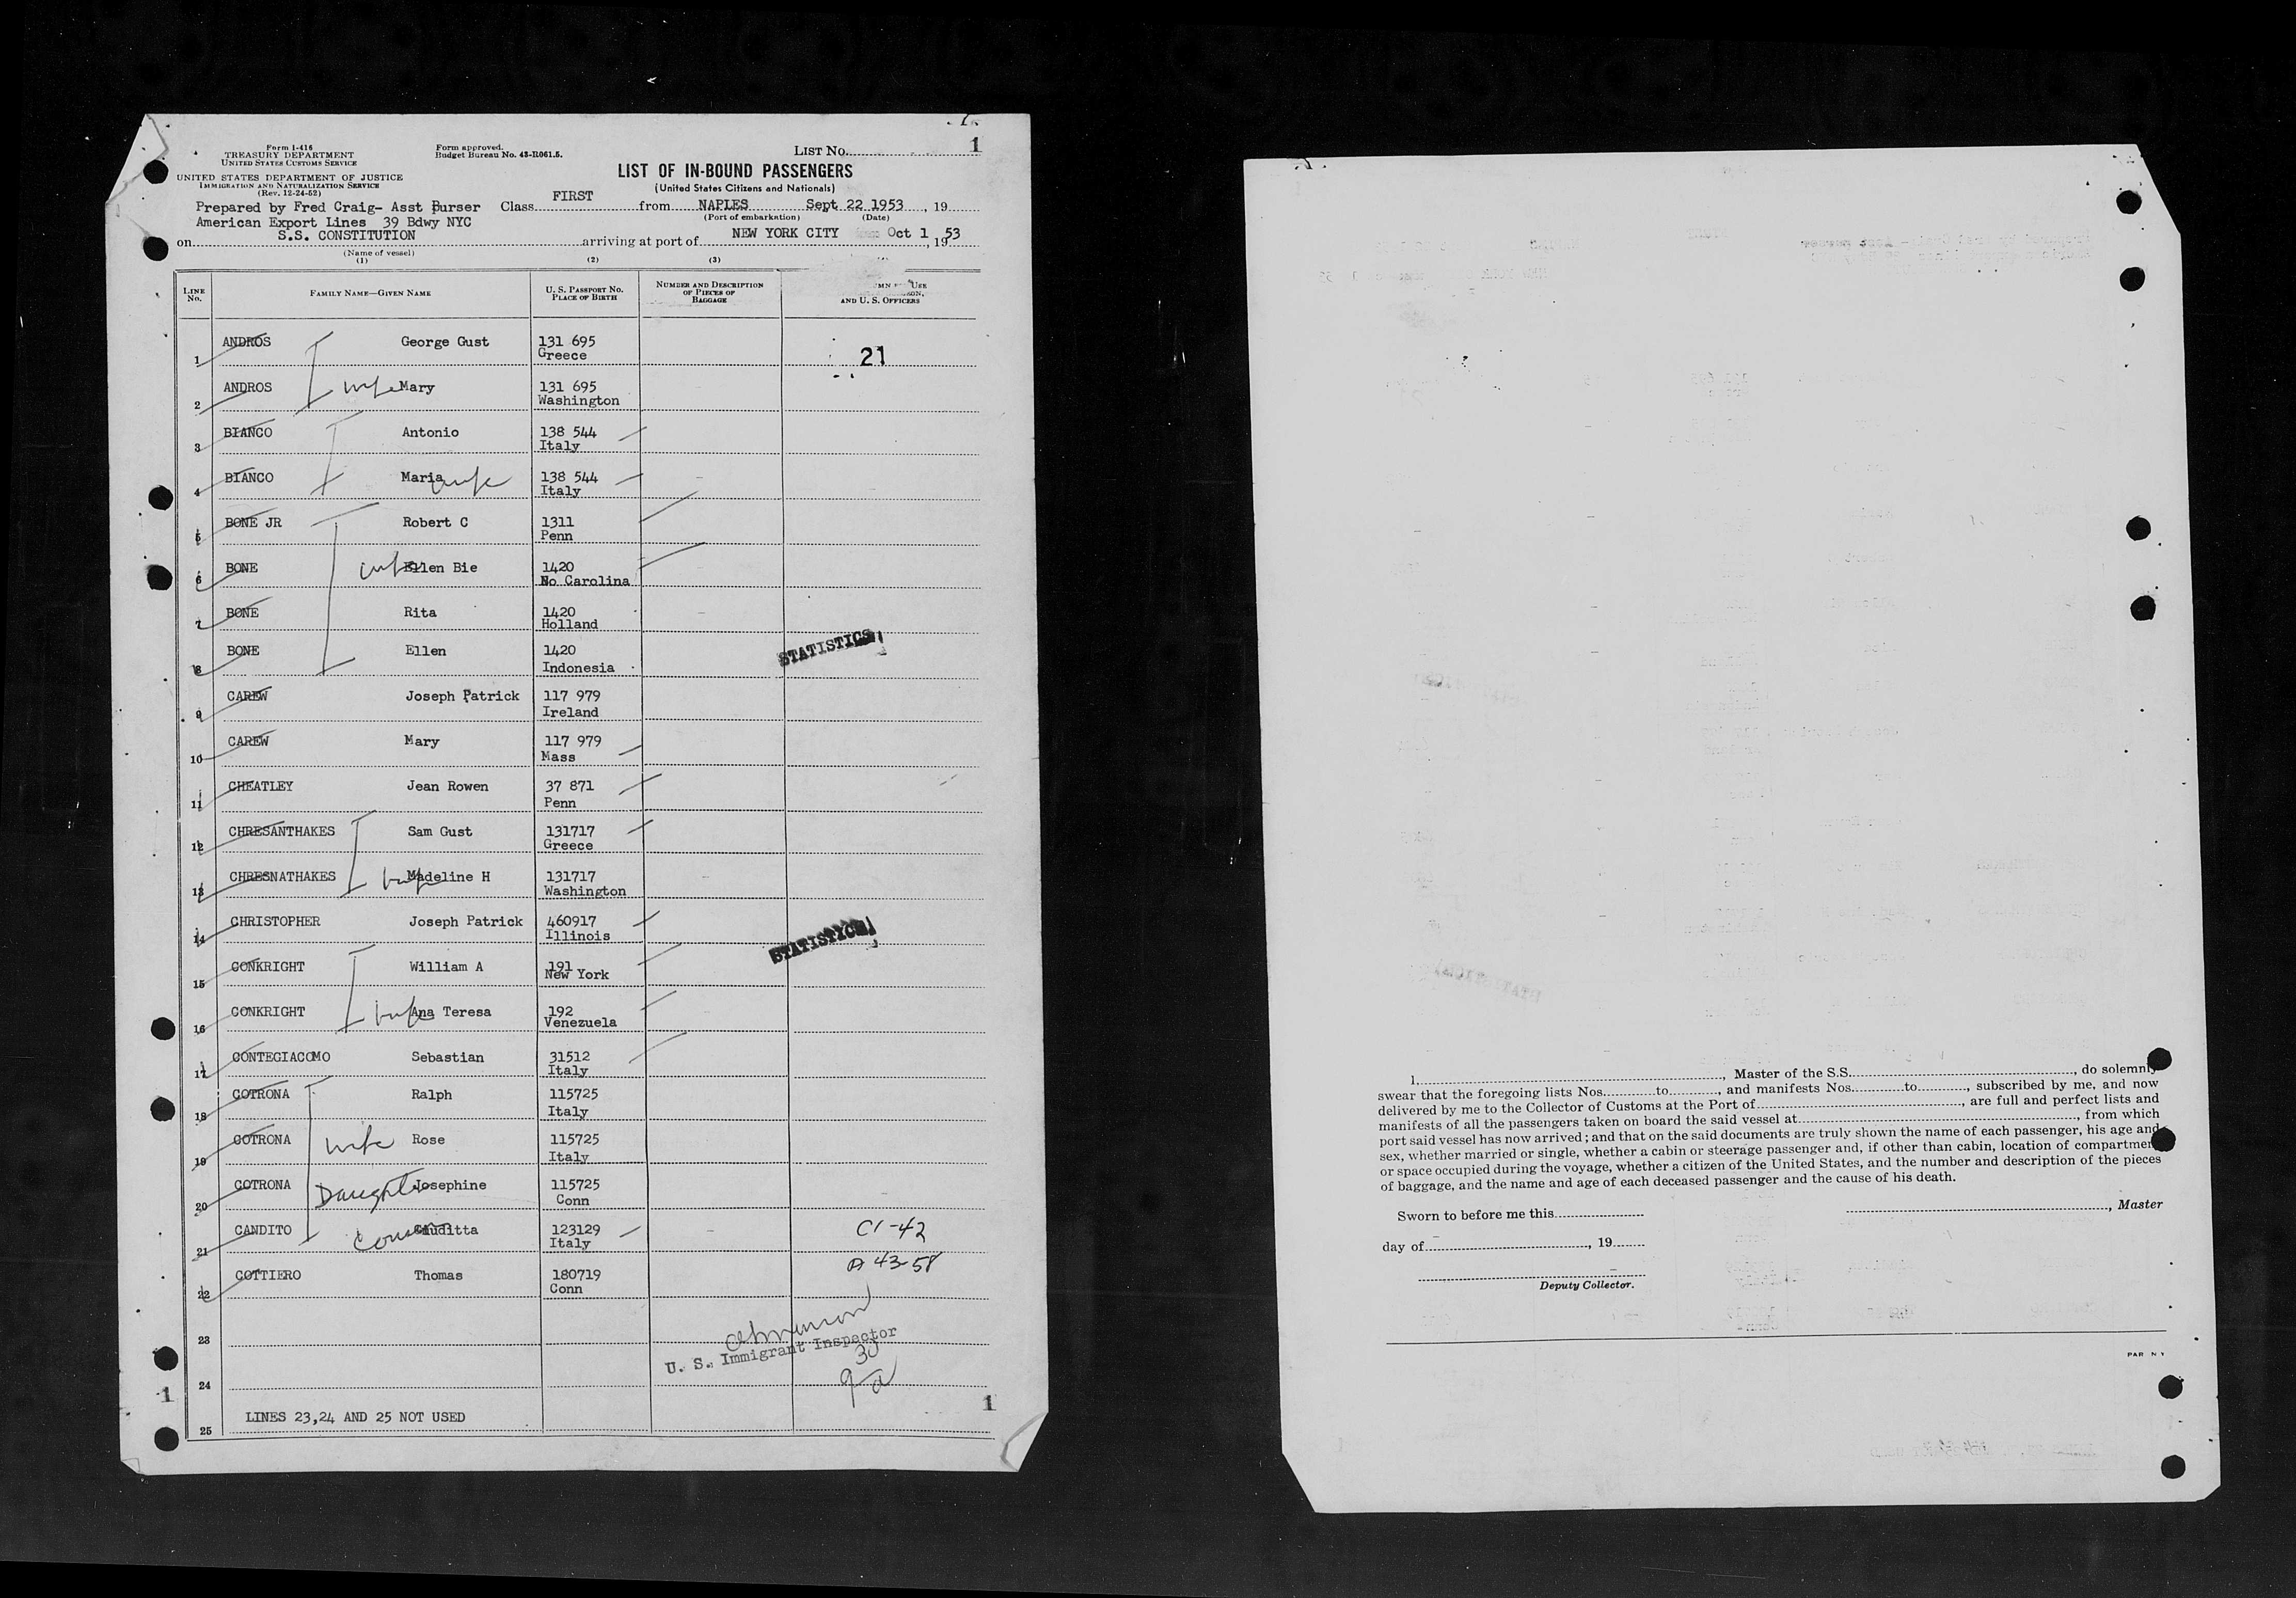 Form I-416
TREASURY DEPARTMENT
UNITED STATES CUSTOMS SERVICE
UNITED STATES DEPARTMENT OF JUSTICE
IMMIGRATION AND NATURALIZATION SERVICE
(Rev. 12-24-52)
Form approved.
Budget Bureau No. 43-R061.5.
LIST No. 1
LIST OF IN-BOUND PASSENGERS
(United States Citizens and Nationals)
Prepared by Fred Craig- Asst Purser Class FIRST from NAPLES Sept 22 1953, 19
(Port of embarkation) (Date)
American Export Lines 39 Bdwy NYC
on S.S. CONSTITUTION arriving at port of NEW YORK CITY Oct 1, 1953
(Name of vessel)
(1) (2) (3)
LINE No. FAMILY NAME—GIVEN NAME U. S. PASSPORT No. PLACE OF BIRTH NUMBER AND DESCRIPTION OF PIECES OF BAGGAGE USE AND U. S. OFFICERS
1 ANDROS George Gust 131 695 Greece 21
2 ANDROS wife Mary 131 695 Washington
3 BIANCO Antonio 138 544 Italy
4 BIANCO Maria wife 138 544 Italy
5 BONE JR Robert C 1311 Penn
6 BONE wife Ellen Bie 1420 No Carolina
7 BONE Rita 1420 Holland
8 BONE Ellen 1420 Indonesia
STATISTICS
9 CAREW Joseph Patrick 117 979 Ireland
10 CAREW Mary 117 979 Mass
11 CHEATLEY Jean Rowen 37 871 Penn
12 CHRESANTHAKES Sam Gust 131717 Greece
13 CHRESNATHAKES wife Madeline H 131717 Washington
14 CHRISTOPHER Joseph Patrick 460917 Illinois
STATISTICS
15 CONKRIGHT William A 191 New York
16 CONKRIGHT wife Ana Teresa 192 Venezuela
17 CONTEGIACOMO Sebastian 31512 Italy
18 COTRONA Ralph 115725 Italy
19 COTRONA wife Rose 115725 Italy
20 COTRONA Daughter Josephine 115725 Conn
21 CANDITO Cousin Giuditta 123129 Italy C1-42
A 43-58
22 COTTIERO Thomas 180719 Conn
23
U. S. Immigrant Inspector
9 30 a
24
1
1
LINES 23,24 AND 25 NOT USED
25
I, Master of the S.S. , do solemnly
swear that the foregoing lists Nos. to , and manifests Nos. to , subscribed by me, and now
delivered by me to the Collector of Customs at the Port of , are full and perfect lists and
manifests of all the passengers taken on board the said vessel at , from which
port said vessel has now arrived; and that on the said documents are truly shown the name of each passenger, his age and
sex, whether married or single, whether a cabin or steerage passenger and, if other than cabin, location of compartment
or space occupied during the voyage, whether a citizen of the United States, and the number and description of the pieces
of baggage, and the name and age of each deceased passenger and the cause of his death.
Sworn to before me this
, Master
day of , 19
Deputy Collector.
PAR N Y